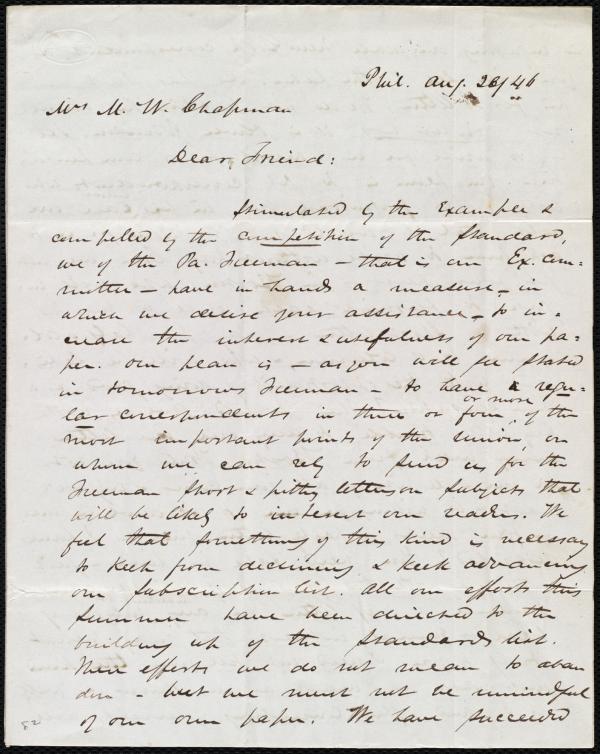 Phil. Aug. 26/46
Mrs M. W. Chapman
Dear Friend:
Stimulated by the example &
compelled by the competition of the Standard,
we of the Pa. Freeman – that is our Ex. com-
mittee – have in hands a measure, in
which we desire your assistance, to in-
crease the interest & usefulness of our pa-
per. Our plan is – as you will see stated
in tomorrows Freeman – to have regu-
lar correspondents in three or four or more of the
most important points of the union, on
whom we can rely to send us for the
Freeman short & pithy letters on subjects that
will be likely to interest our readers. We
feel that something of this kind is necessary
to keep from declining & keep advancing
our subscription list. All our efforts this
Summer have been directed to the
building up of the Standards list.
These efforts we do not mean to aban
don – but we must not be unmindful
of our own paper. We have succeeded
52